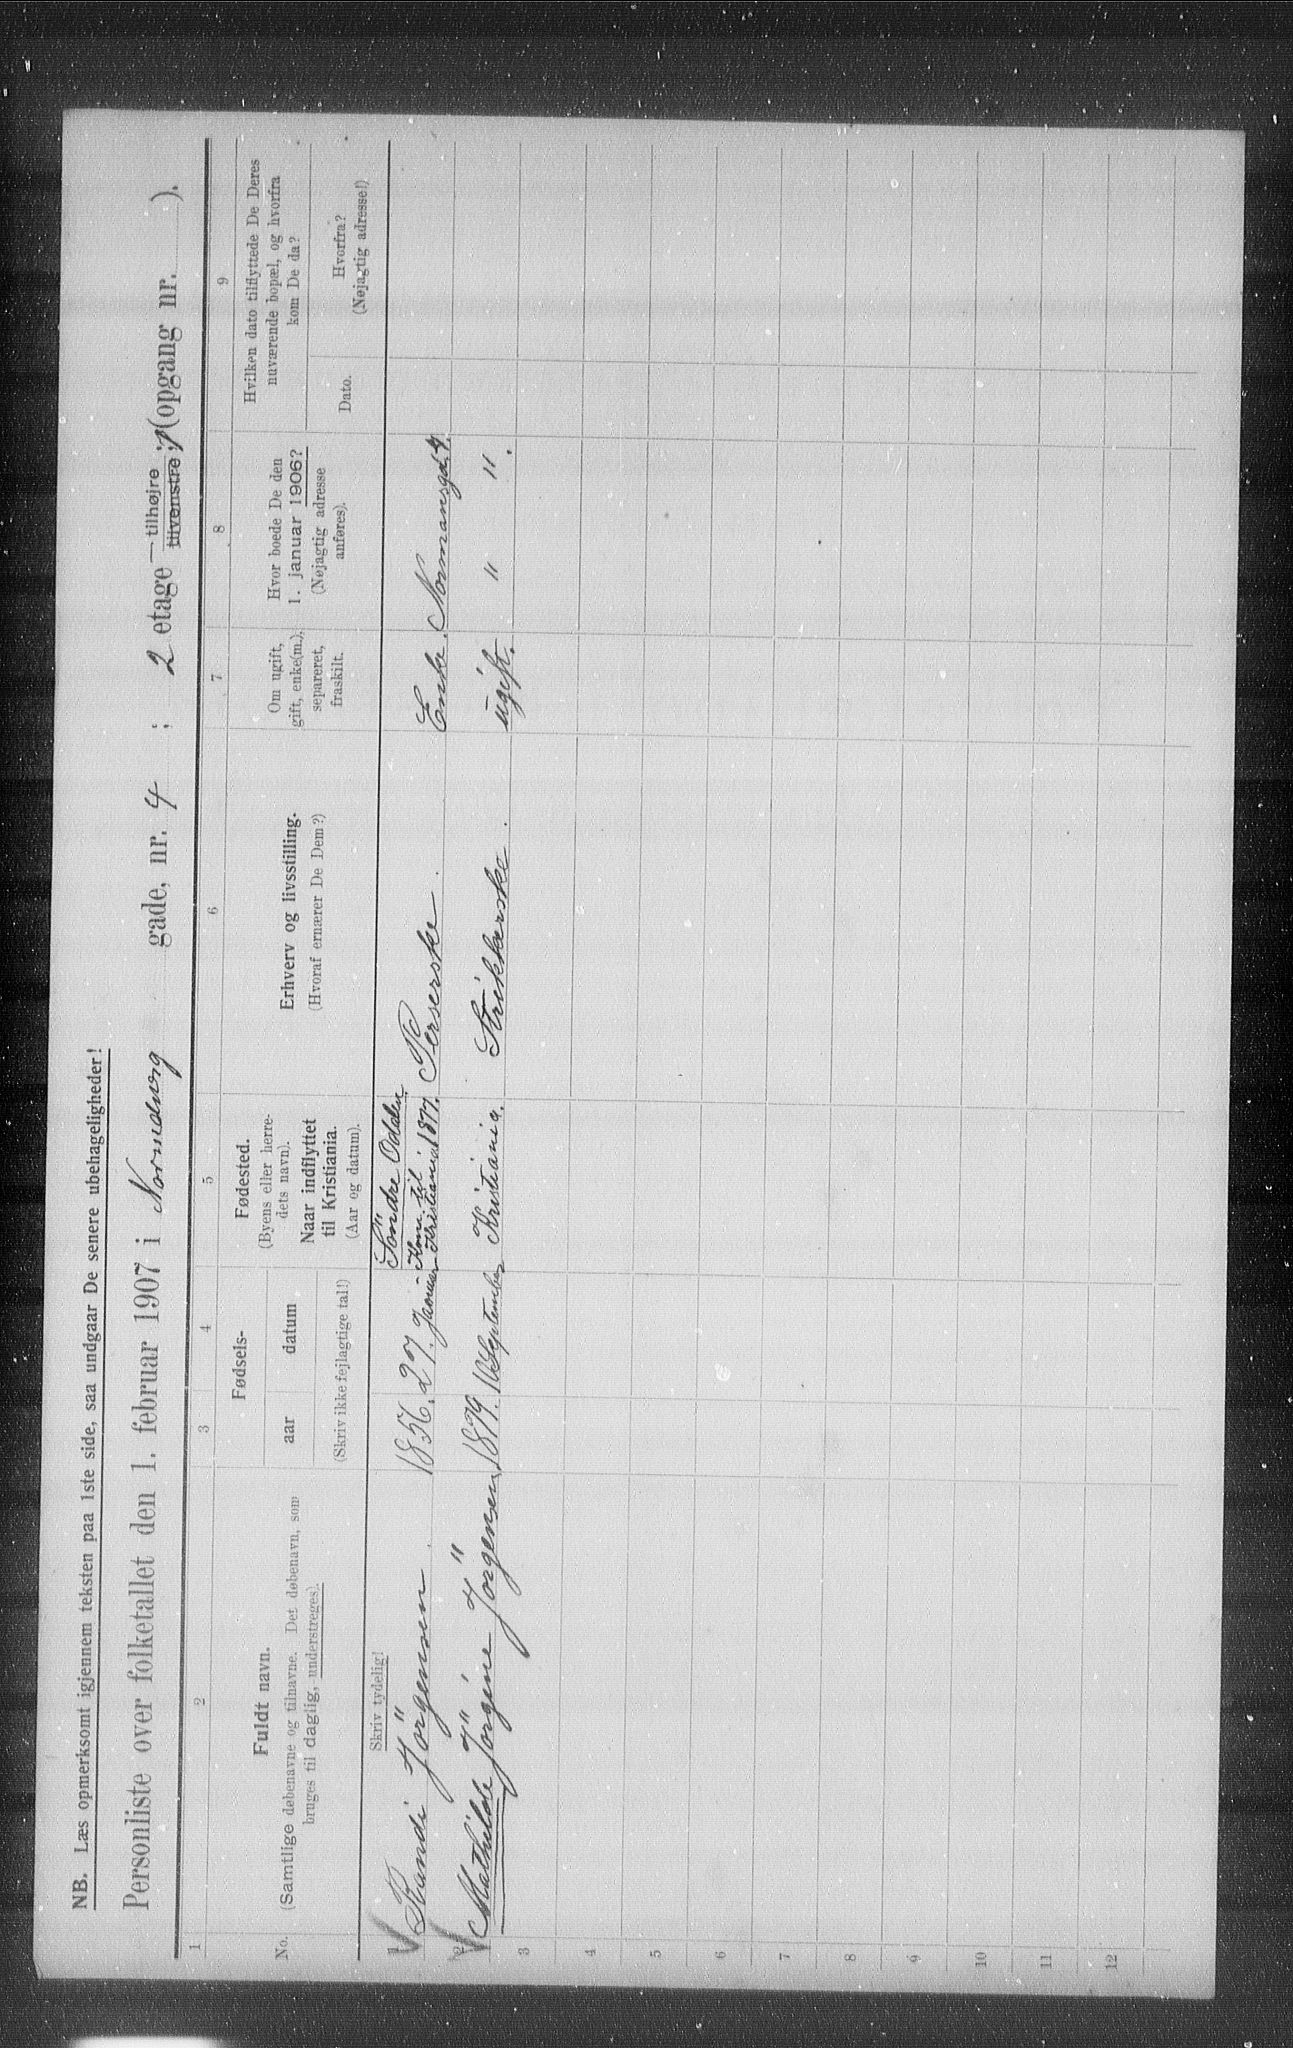 NB. Læs opmerksomt igjennem teksten paa 1ste side, saa undgaar De senere ubehageligheder!
Personliste over folketallet den 1. februar 1907 i gade, nr. 4 ; 2 etage tilhøjre tilvenstre ; (opgang nr. ).
1 2 3 4 5 6 7 8 9
No.
Fuldt navn.
(Samtlige døbenavne og tilnavne. Det døbenavn, som
bruges til daglig, understreges).
Fødsels-
aar datum
(Skriv ikke fejlagtige tal!)
Fødested.
(Byens eller herre-
dets navn).
Naar indflyttet
til Kristiania.
(Aar og datum).
Erhverv og livsstilling.
(Hvoraf ernærer De Dem?)
Om ugift,
gift, enke(m.),
separeret,
fraskilt.
Hvor boede De den
1. januar 1906?
(Nøjagtig adresse
anføres).
Hvilken dato tilflyttede De Deres
nuværende bopæl, og hvorfra
kom De da?
Dato.
Hvorfra?
(Nøjagtig adresse!)
Skriv tydelig!
Söndre Odalen
Kom til
Kristiania 1877.
1 Randi Jörgensen. 1856. 27. Januar Perserske. Enke. Normansgd. 4.
2 Mathilde Jörgine Jörgensen, 1879. 16 September Kristiania. Strikkerske. ugift. " ".
3
4
5
6
7
8
9
10
11
12